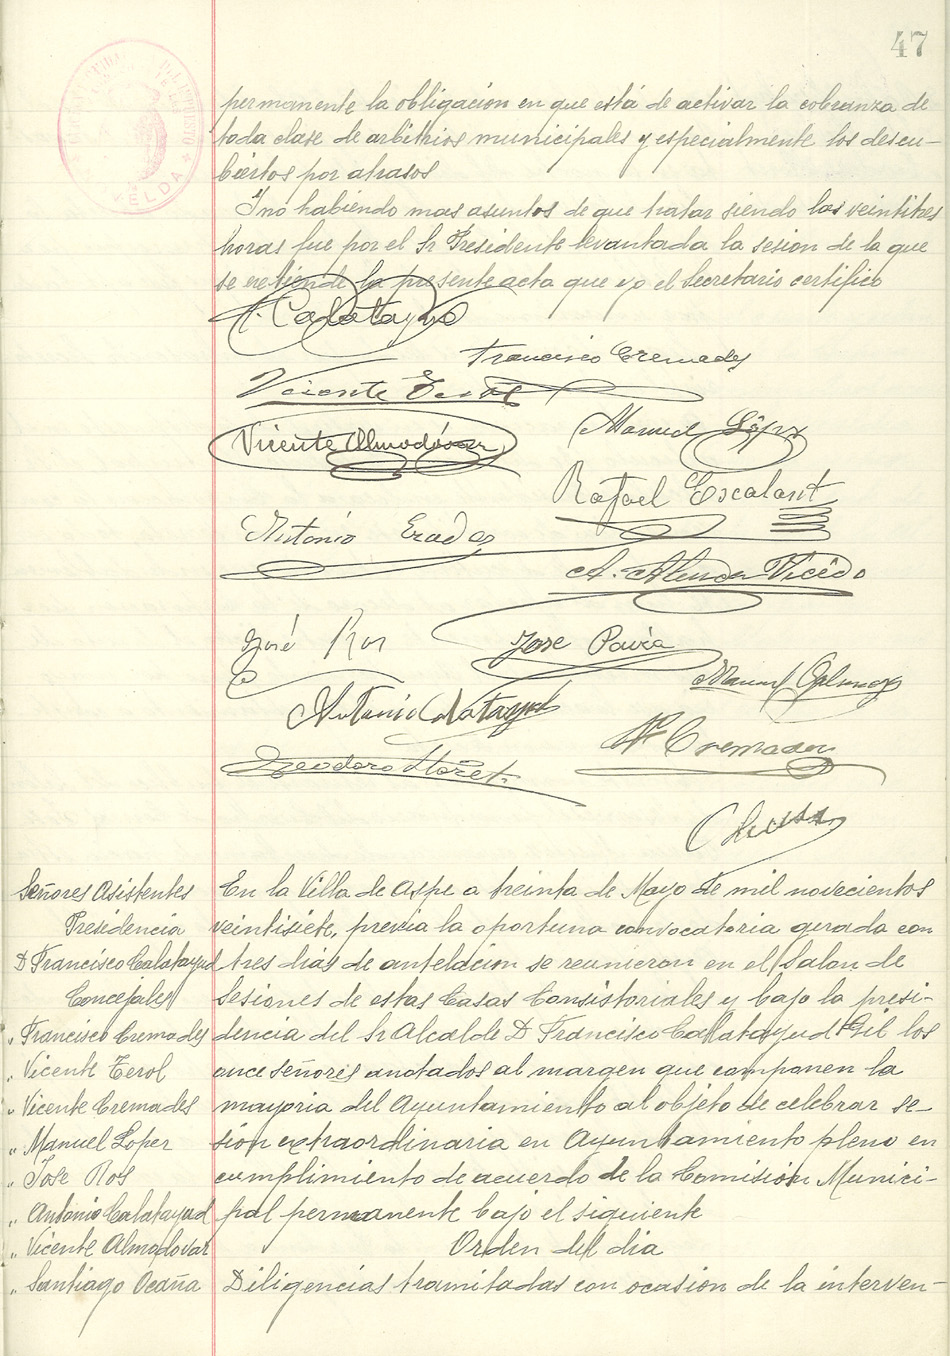 47
permanente la obligacion en que está de activar la cobranza de
toda clase de arbitrios municipales y especialmente los descu-
biertos por atrasos
Y no habiendo mas asuntos de que tratar siendo las veintitres
horas fue por el Sr Presidente levantada la sesion de la que
se extiende la presente acta que yo el Secretario certifico
F. Calatayud
Francisco Cremades
Vicente Terol
Vicente Almodóvar
Manuel López
Rafael Escalant
Antonio
A. Vicedo
José Ros
Jose Pavia
Manuel
Antonio Calatayud
Cremades
Teodoro Lloret
ELDA
Señores Asistentes
Presidencia
D Francisco Calatayud
Concejales
" Francisco Cremades
" Vicente Terol
" Vicente Cremades
" Manuel Loper
" Jose Ros
" Antonio Calatayud
" Vicente Almodovar
" Santiago Ocaña
En la Villa de Aspe a treinta de Mayo de mil novecientos
veintisiete, previa la oportuna convocatoria girada con
tres dias de antelacion se reunieron en el Salon de
Sesiones de estas Casas Consistoriales y bajo la presi-
dencia del Sr Alcalde D Francisco Calatayud Gil los
once señores anotados al margen que componen la
mayoria del Ayuntamiento al objeto de celebrar se-
sion extraordinaria en Ayuntamiento pleno en
cumplimiento de acuerdo de la Comision Munici-
pal permanente bajo el siguiente
Orden del dia
Diligencias tramitadas con ocasion de la interven-